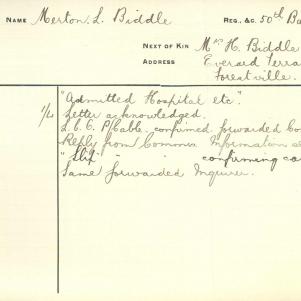 NAME Merton. L. Biddle REG. &C. 50th Ba
NEXT OF KIN Mrs H. Biddle
ADDRESS Everard Terra
Forestville.
"Admitted Hospital etc."
1/4 Letter acknowledged.
confirmed forwarded
Reply from Comms Information
"Slip" " " confirming ca
Same forwarded Inquirer.